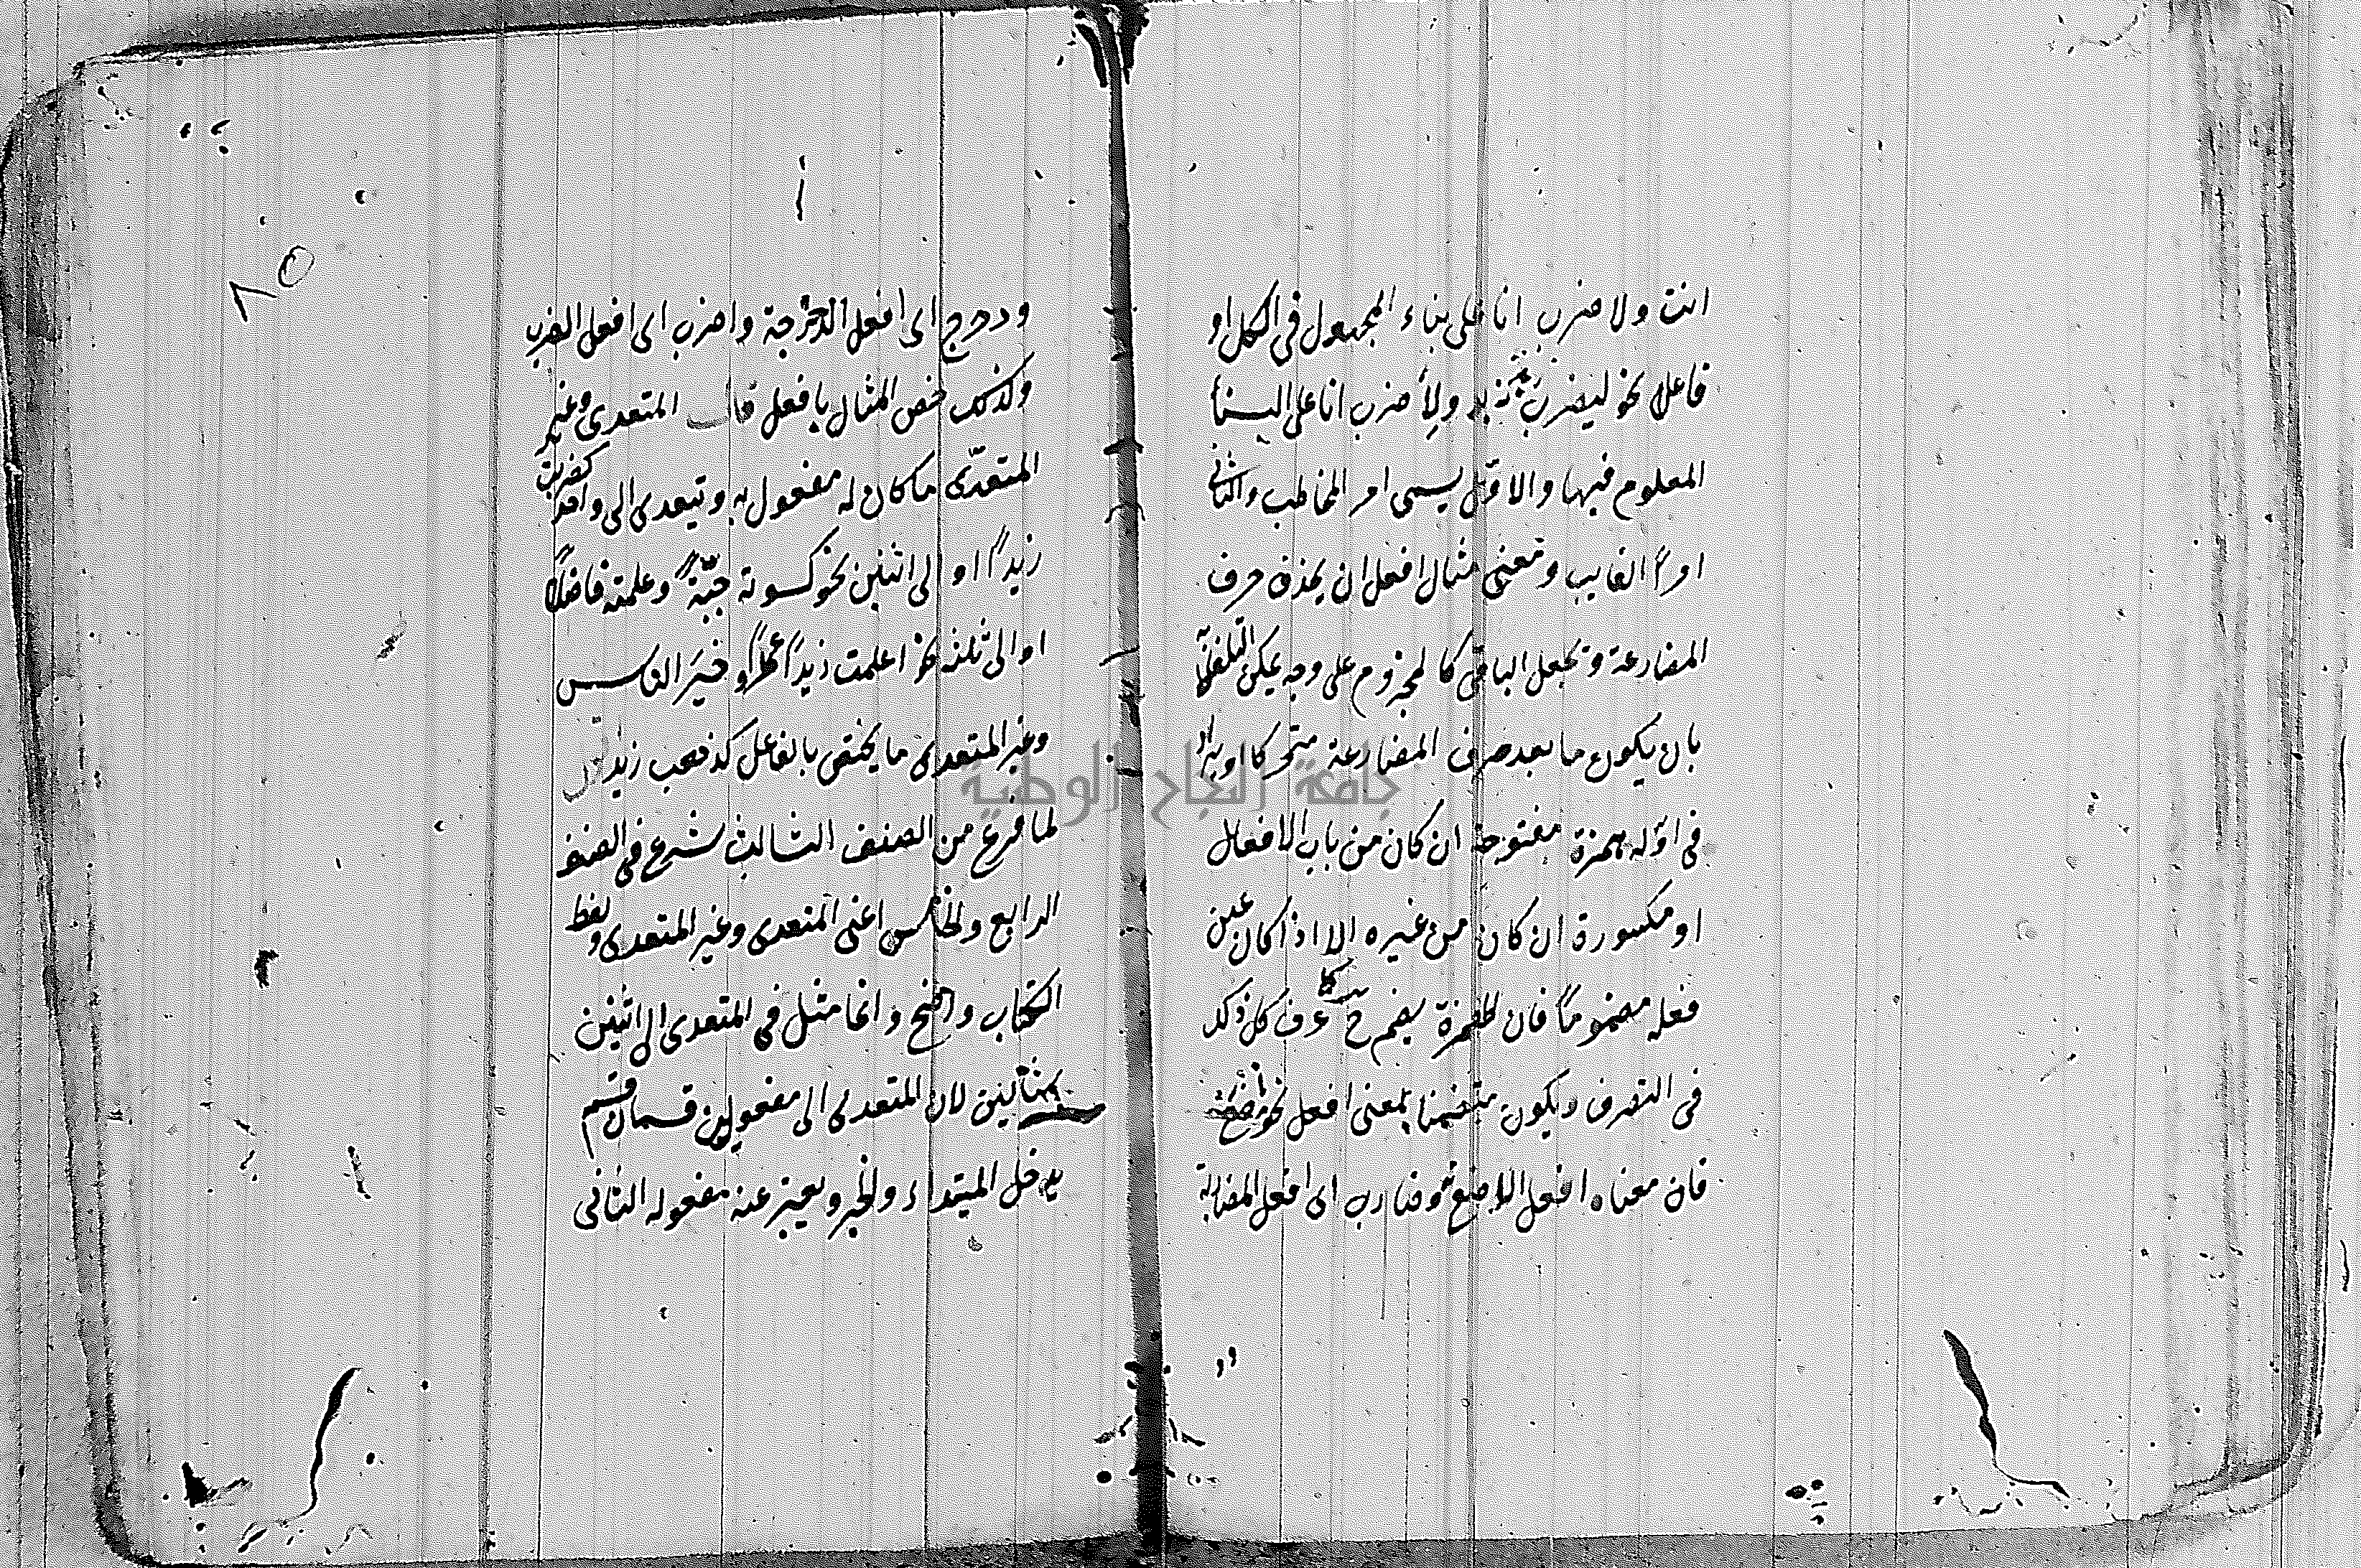 انت ولا ضرب انا على بناء المجهول فى الكل او
فاعلا نحو ليضرب زيد ولأضرب انا على البناء
المعلوم فيها والاول يسمى امر المخاطب والثانى
امرا الغايب ومعنى مثال افعل ان يحذف حرف
المضارعة وتجعل الباقى كالمجزوم على وجه يمكن التلفظ
بان يكون ما بعد حرف المضارعة متحركا او يزاد
فى اوله همزة مفتوحة ان كان من باب الافعال
او مكسورة ان كان من غيره الا اذا كان عين
فعله مضموما فان الهمزة يضم ح كما عرف كل ذلك
فى التصرف ويكون متضمنا بمعنى افعل نحو
فان معناه افعل الوضع وضارب اى افعل المضاربة
٨٥
ودحرج اى افعل الدحرجة واضرب اى افعل الضرب
ولذلك خص المثال بافعل قال المتعدى وغير
المتعدى ما كان له مفعول به ويتعدى الى واحد كضربت
زيدا او الى اثنين نحو كسوته جبّة وعلمته فاضلا
او الى ثلثة نحو اعلمت زيدا عمرا خير الناس
وغير المتعدى ما يختص بالفاعل كذهب زيد
لما فرغ من الصنف الثالث شرع فى الصنف
الرابع والخامس اعنى المتعدى وغير المتعدى ولفظ
الكتاب واضح وانما مثل فى المتعدى الى اثنين
بمثالين لان المتعدى الى مفعولين قسمان قسم
يدخل المبتداء والخبر ويعبر عنه مفعوله الثانى
جامعة النجاح الوطنية